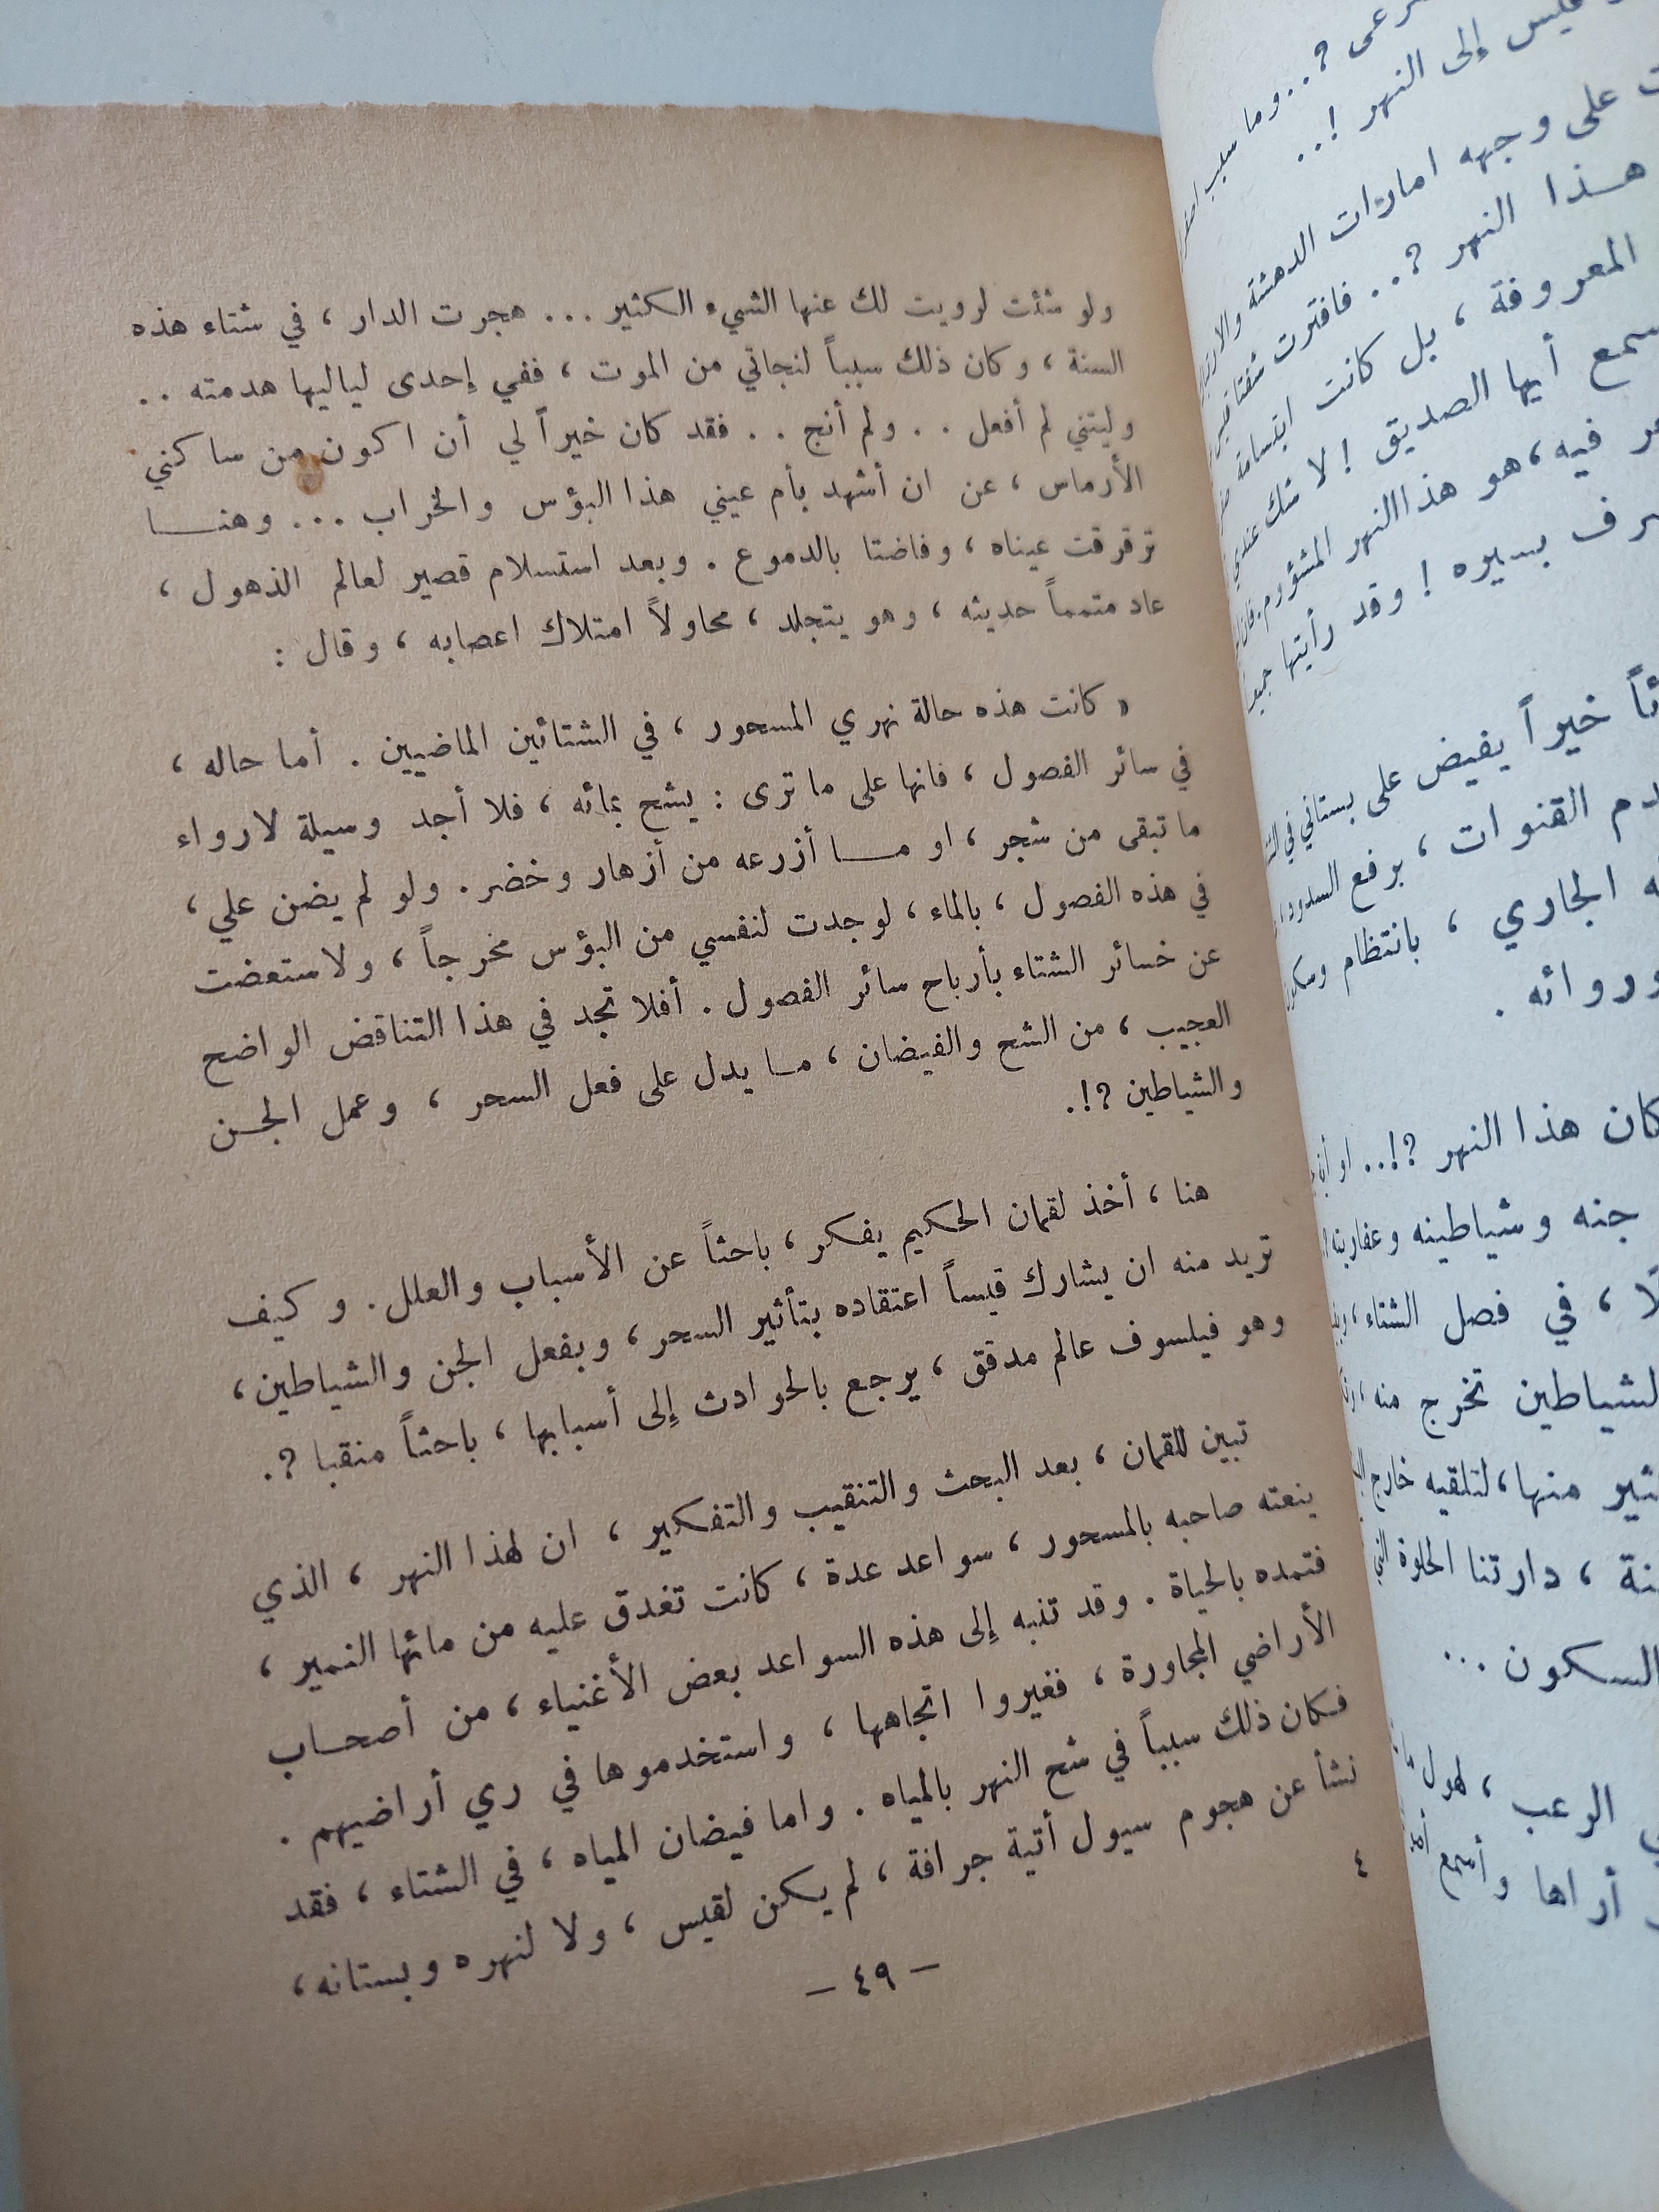 ولو شئت لرويت لك عنها الشيء الكثير ... هجرت الدار ، في شتاء هذه
السنة ، وكان ذلك سبباً لنجاتي من الموت ، ففي إحدى لياليها هدمته . .
وليتني لم أفعل . . ولم أنج . . فقد كان خيراً لي أن اكون من ساكني
الأرماس ، عن ان أشهد بأم عيني هذا البؤس والخراب ... وهنـــا
ترقرقت عيناه ، وفاضتا بالدموع . وبعد استسلام قصير لعالم الذهول ،
عاد متمماً حديثه ، وهو يتجلد ، محاولاً امتلاك اعصابه ، وقال :
« كانت هذه حالة نهري المسحور ، في الشتائين الماضيين . أما حاله ،
في سائر الفصول ، فانها على ما ترى : يشح بمائه ، فلا أجد وسيلة لارواء
ما تبقى من شجر ، او مـــا أزرعه من أزهار وخضر . ولو لم يضن علي ،
في هذه الفصول ، بالماء ، لوجدت لنفسي من البؤس مخرجاً ، ولاستعضت
عن خسائر الشتاء بأرباح سائر الفصول . أفلا تجد في هذا التناقض الواضح
العجيب ، من الشح والفيضان ، مـا يدل على فعل السحر ، وعمل الجـن
والشياطين ?!.
هنا ، أخذ لقمان الحكيم يفكر ، باحثاً عن الأسباب والعلل . وكيف
تريد منه ان يشارك قيساً اعتقاده بتأثير السحر ، وبفعل الجن والشياطين ،
وهو فيلسوف عالم مدقق ، يرجع بالحوادث إلى أسبابها ، باحثاً منقبا ?.
تبين للقمان ، بعد البحث والتنقيب والتفكير ، ان لهذا النهر ، الذي
ينعته صاحبه بالمسحور ، سواعد عدة ، كانت تغدق عليه من مائها النمير ،
فتمده بالحياة . وقد تنبه إلى هذه السواعد بعض الأغنياء ، من أصحـاب
الأراضي المجاورة ، فغيروا اتجاهها ، واستخدموها في ري أراضيهم .
فكان ذلك سبباً في شح النهر بالمياه . واما فيضان المياه ، في الشتاء ، فقد
نشأ عن هجوم سيول أتية جرافة ، لم يكن لقيس ، ولا لنهره وبستانه ،
٤
— ٤٩ —
وما سبب
إلى النهر !..
على وجهه امارات الدهشة
هـذا النهر ?.. فافترت شفتا
المعروفة ، بل كانت ابتسامة
أيها الصديق ! لا شك عندي
فيه ، هو هذا النهر المشؤوم
بسيره ! وقد رأيتها جميعاً
خيراً يفيض على بستاني في
القنوات ، برفع السدود
الجاري ، بانتظام
وروائه .
كان هذا النهر ?!.. او
جنه وشياطينه
، في فصل الشتاء ،
الشياطين تخرج منه ،
منها ، لتلقيه خارج
، دارتنا الحلوة التي
السكون ...
الرعب ، لهول
أراها وأسمع